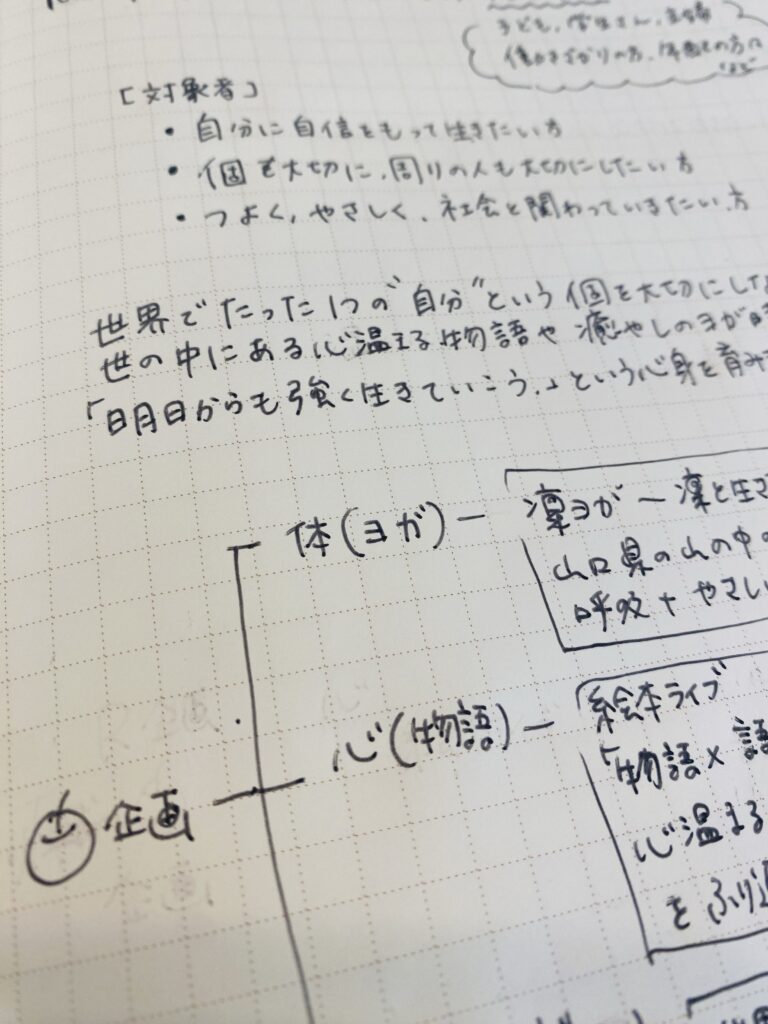 子ども、学生さん、
働きざかりの方、年配の方々
など
[対象者]
• 自分に自信をもって生きたい方
• 個を大切に、周りの人も大切にしたい方
• つよく、やさしく、社会と関わっていきたい方
世界でたった1つの"自分"という個を大切にしな
世の中にある心温まる物語や癒やしのヨガ
「明日からも強く生きていこう。」という心身を育み
体(ヨガ)ー
凛ヨガ ー凛と生き
山口県の山の中の
呼吸+やさしい
心(物語)ー
絵本ライブ
「物語×語
心温まる
をふり返
企画